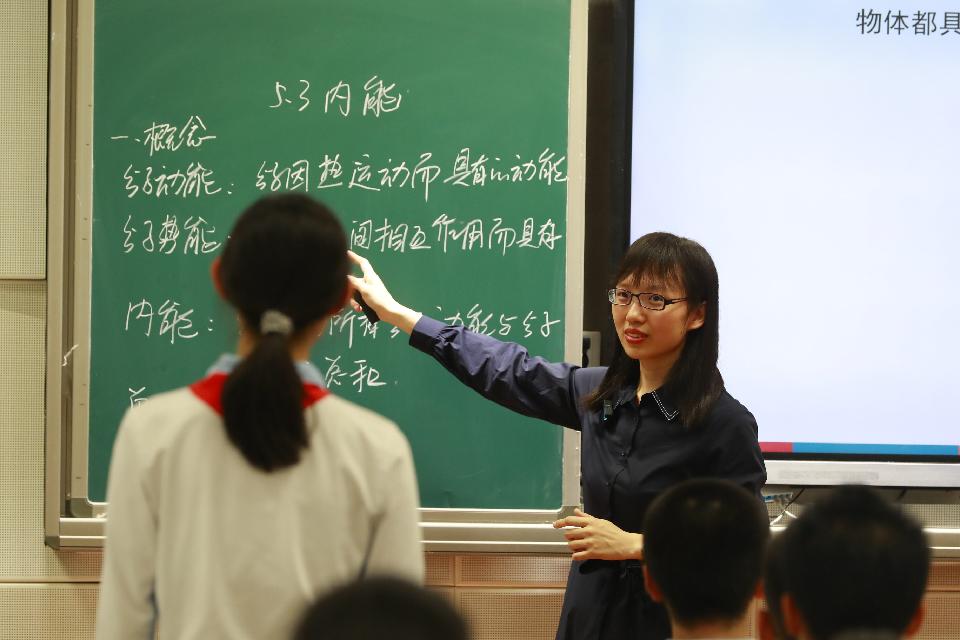 5.3 内能
一、概念
分子动能：分子因热运动而具有的动能
分子势能：间相互作用而具有
内能：所有分子动能与分子
总和.
物体都具